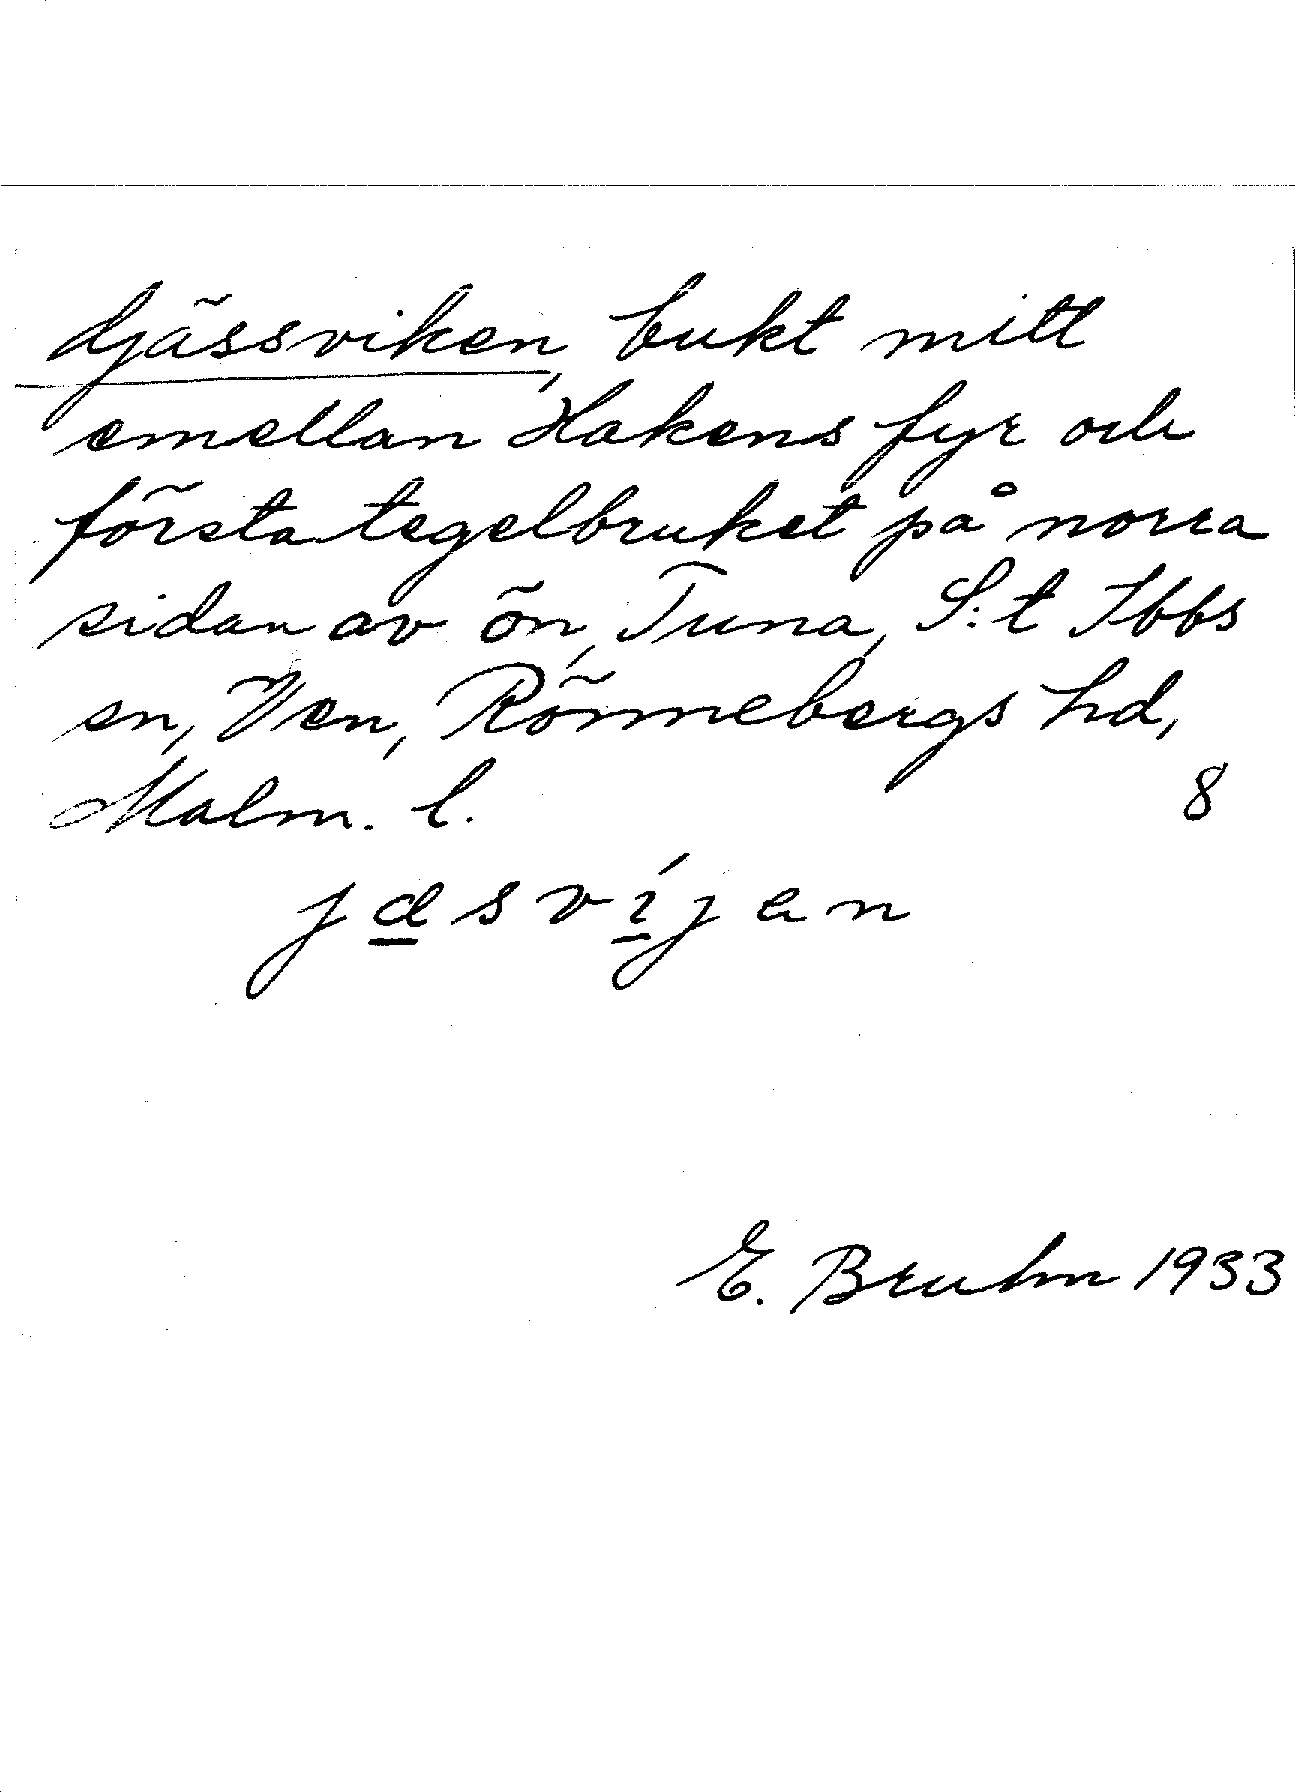 Gjässviken, bukt mitt
emellan Hakens fyr och
första tegelbruket på norra
sidan av ön, Tuna, S:t Ibbs
sn, Ven, Rönnebergs hd,
Malm. l. 8
jæsvíjen
E. Bruhn 1933